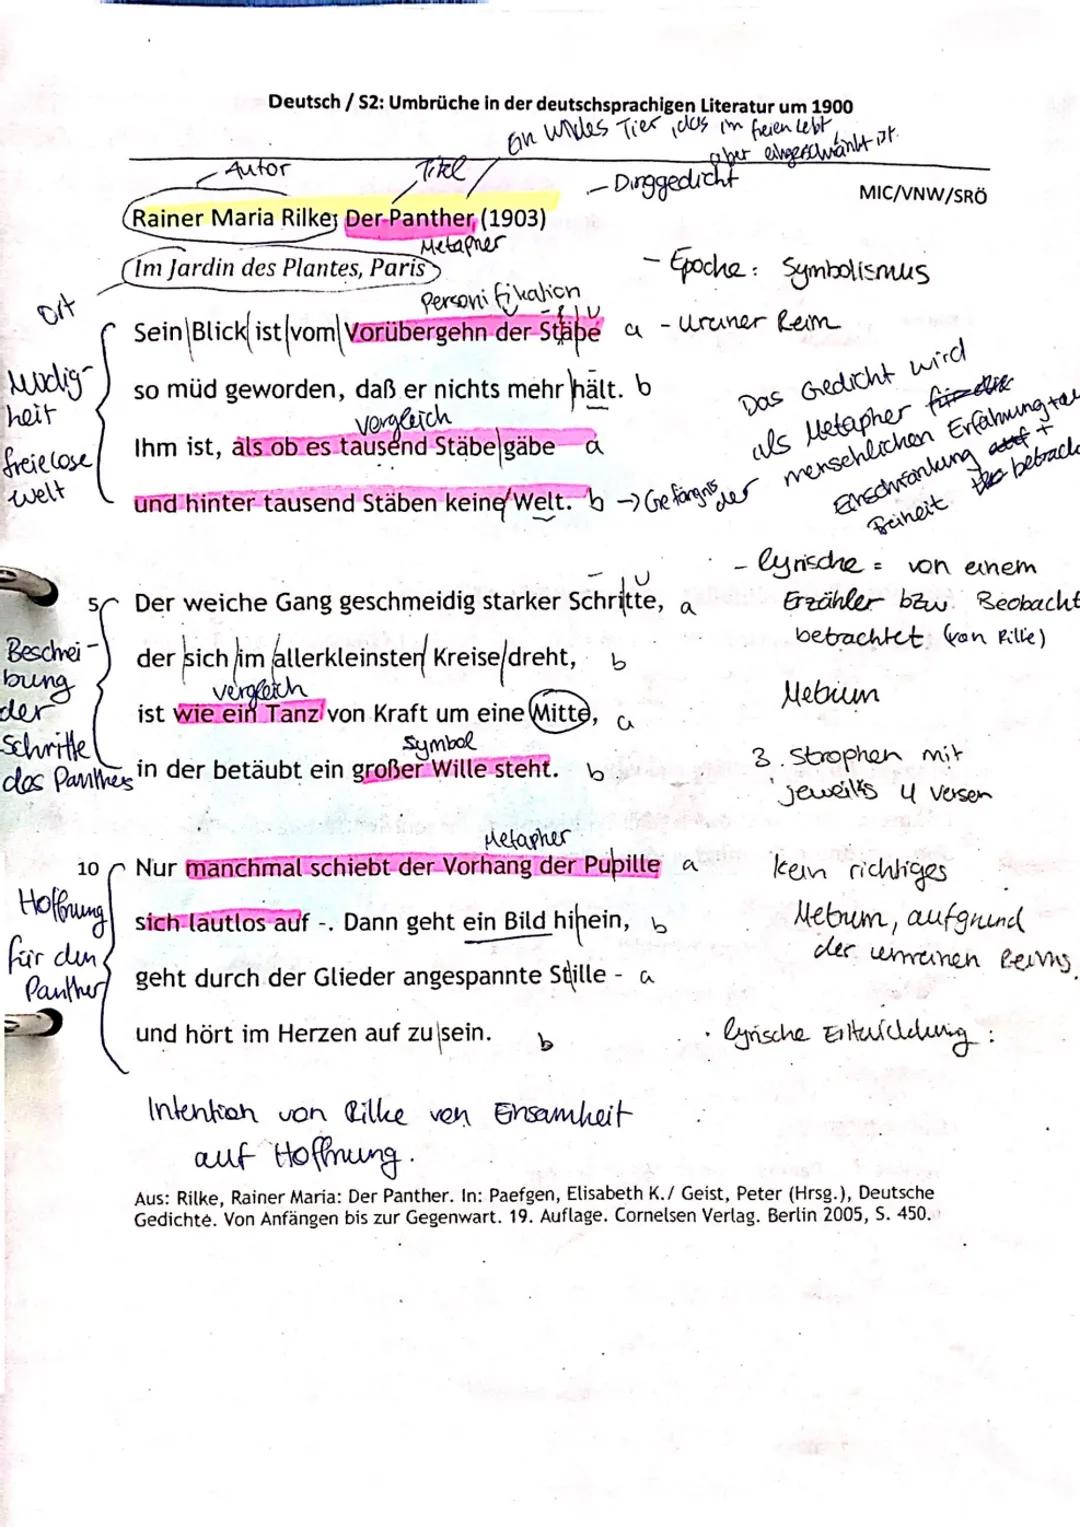 Deutsch / S2: Umbrüche in der deutschsprachigen Literatur um 1900
Ein wildes Tier, das im freien lebt
aber eingeschränkt ist.
Autor
Titel
- Dinggedicht
MIC/VNW/SRÖ
Rainer Maria Rilke: Der Panther (1903)
Metapher
Im Jardin des Plantes, Paris
- Epoche: Symbolismus
Ort
Personifikation
Sein Blick ist vom Vorübergehn der Stäbe a
- Uruner Reim
Müdig-
heit
so müd geworden, daß er nichts mehr hält. b
Das Gedicht wird
als Metapher für die
menschlichen Erfahrung
Einschränkung +
Freiheit
vergleich
Ihm ist, als ob es tausend Stäbe gäbe a
freielose
Welt
und hinter tausend Stäben keine Welt. b → Gefängnis der
- lyrische = von einem
Erzähler bzw. Beobacht
betrachtet (von Rilke)
5 Der weiche Gang geschmeidig starker Schritte, a
Beschrei-
bung
der
Schritte
des Panthers
der sich im allerkleinsten Kreise dreht, b
vergleich
Mebium
ist wie ein Tanz von Kraft um eine Mitte, a
Symbol
in der betäubt ein großer Wille steht. b
3. Strophen mit
jeweils 4 Versen
Metapher
10 Nur manchmal schiebt der Vorhang der Pupille a
kein richtiges
Metrum, aufgrund
der unreinen Reims.
Hoffnung
für den
Panther
sich lautlos auf -. Dann geht ein Bild hinein, b
geht durch der Glieder angespannte Stille - a
und hört im Herzen auf zu sein. b
· lyrische Entwicklung:
Intention von Rilke von Einsamheit
auf Hoffnung.
Aus: Rilke, Rainer Maria: Der Panther. In: Paefgen, Elisabeth K./ Geist, Peter (Hrsg.), Deutsche
Gedichte. Von Anfängen bis zur Gegenwart. 19. Auflage. Cornelsen Verlag. Berlin 2005, S. 450.